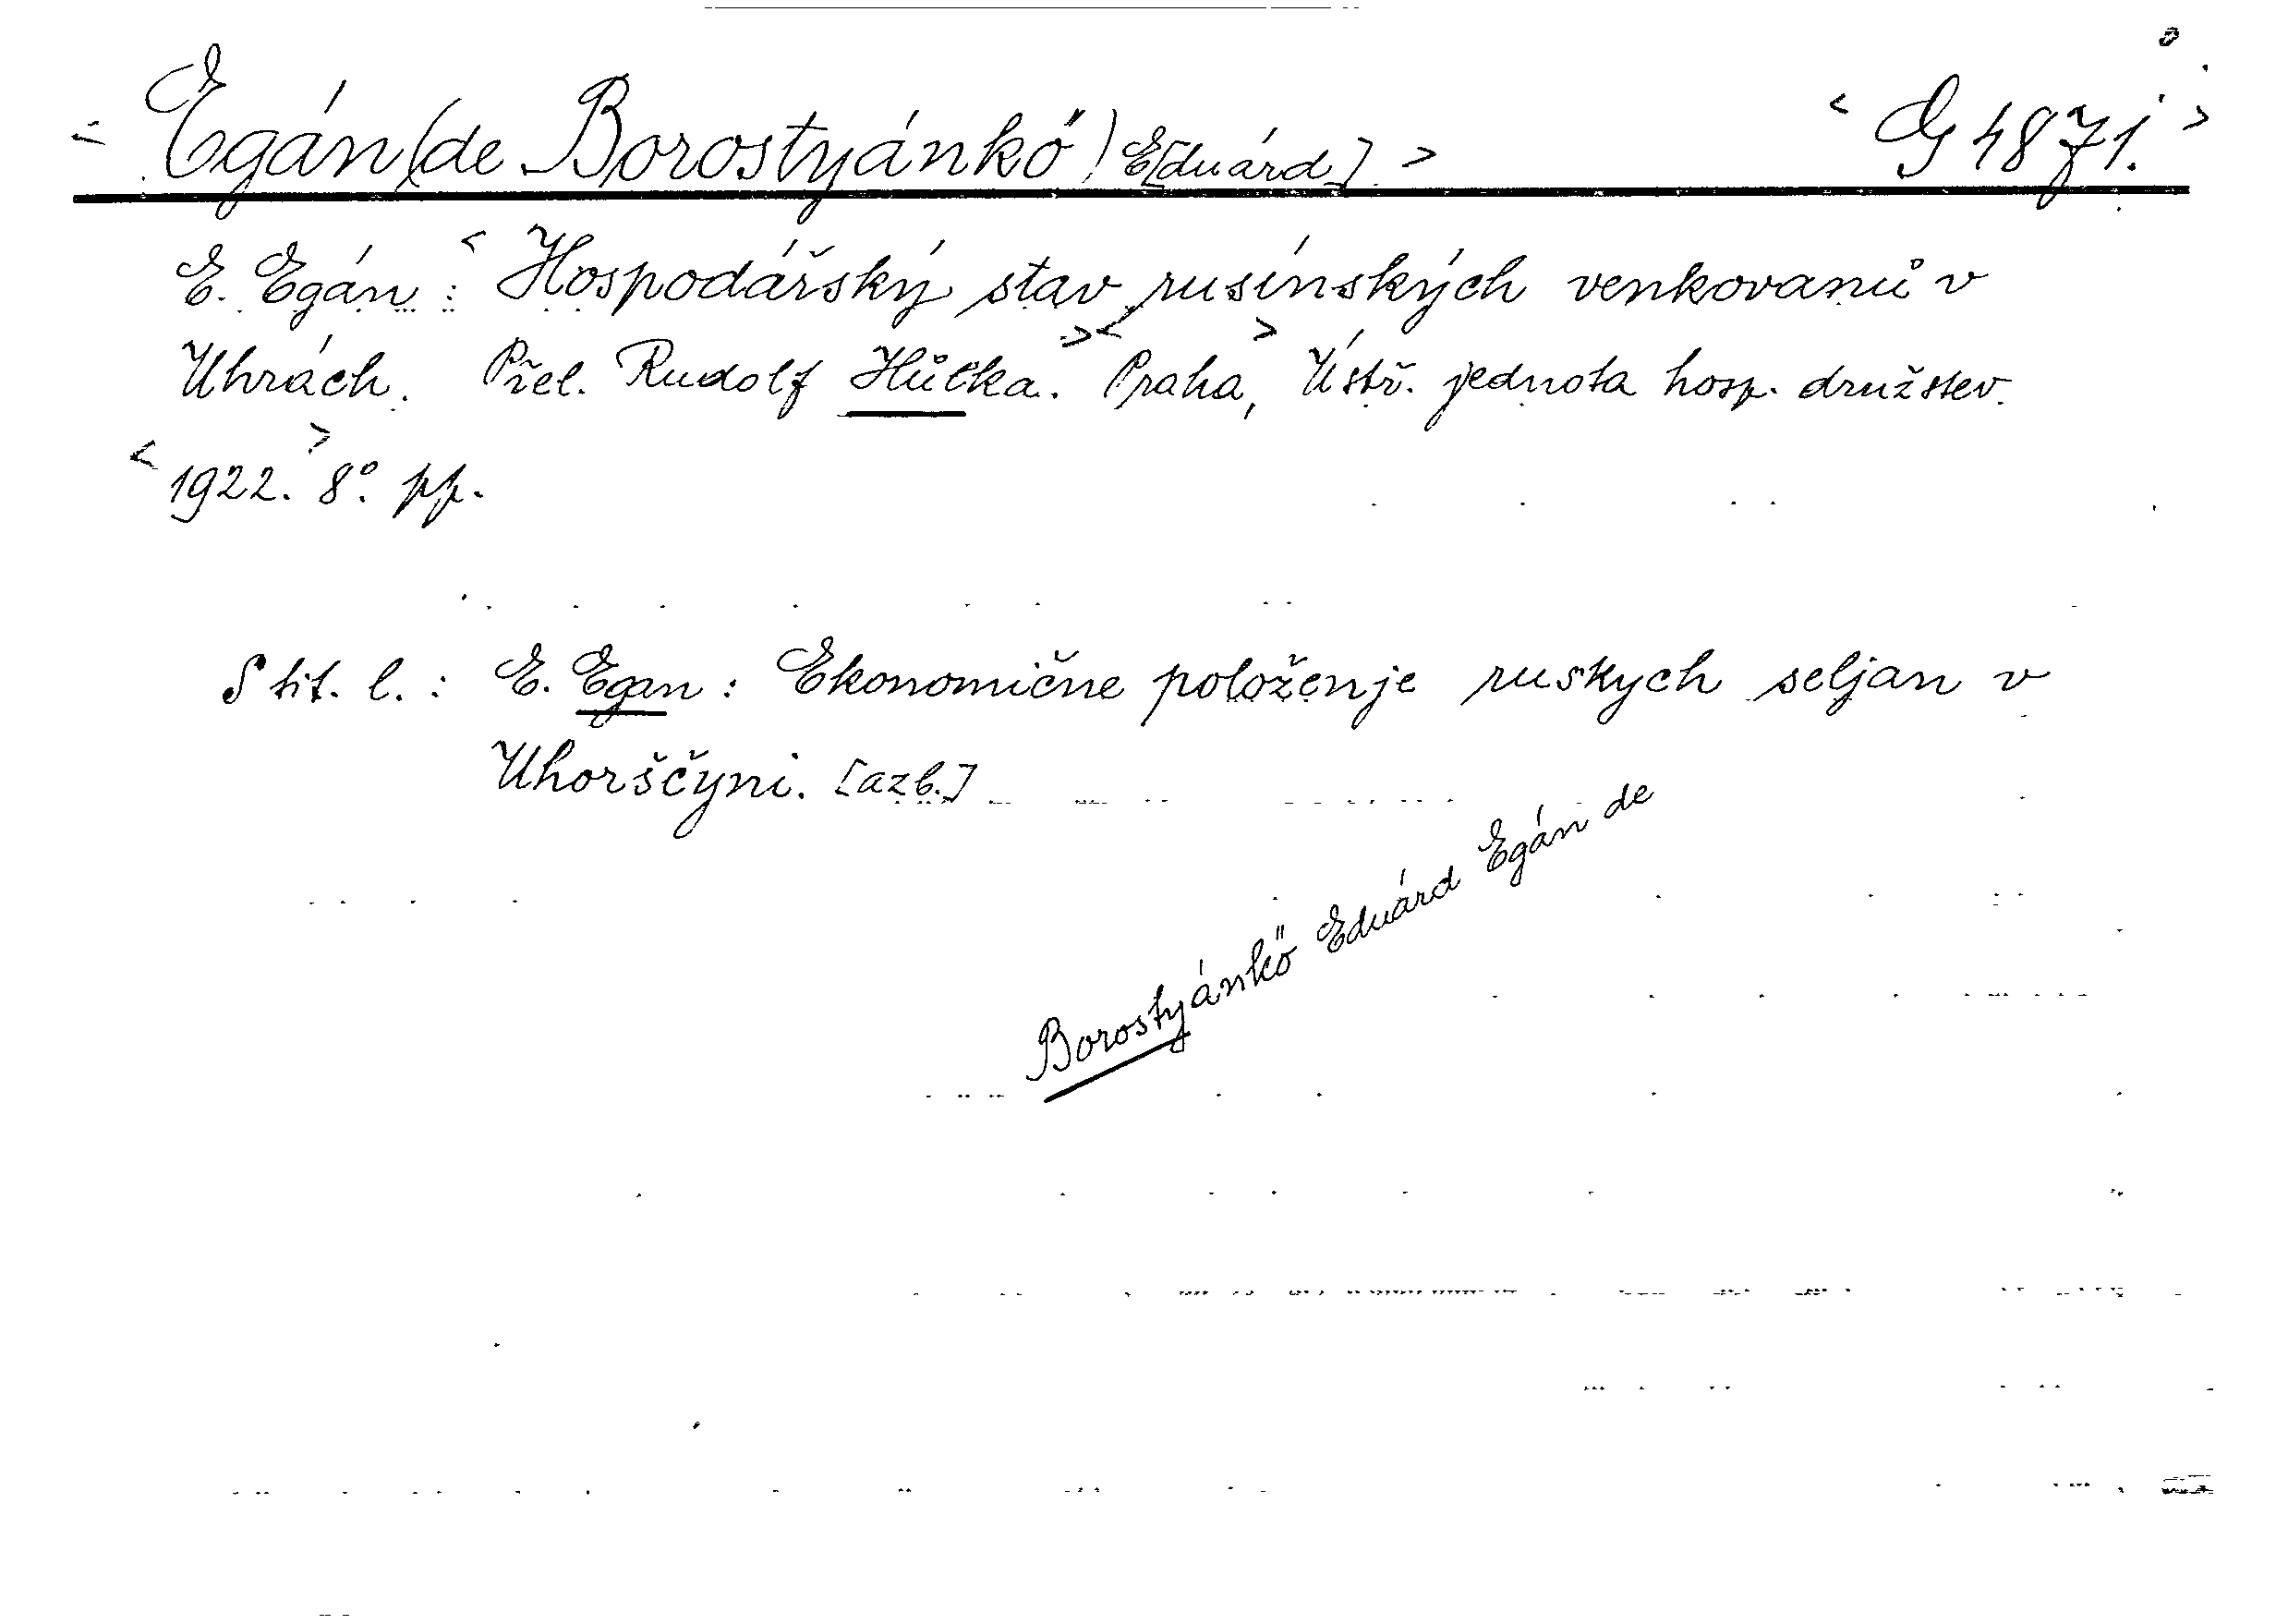 < Egán (de Borostyánkő) E[duárd]. > < G 4871. >
E. Egán : < Hospodářský stav rusínských venkovanů v
Uhrách. Přel. Rudolf Hůlka. > < Praha, > Ústř. jednota hosp. družstev.
< 1922. > 8°. pp.
S tit. l. : E. Egan : Ekonomične položenje ruskych seljan v
Uhorščyni. [azb.]
Borostyánkő Eduárd Egán de